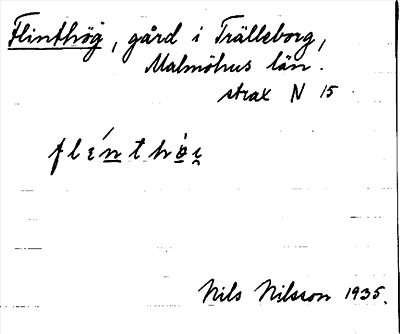 Flinthög, gård i Trälleborg,
Malmöhus län.
strax N 15
flɛ́nthø̀i̯
Nils Nilsson 1935.